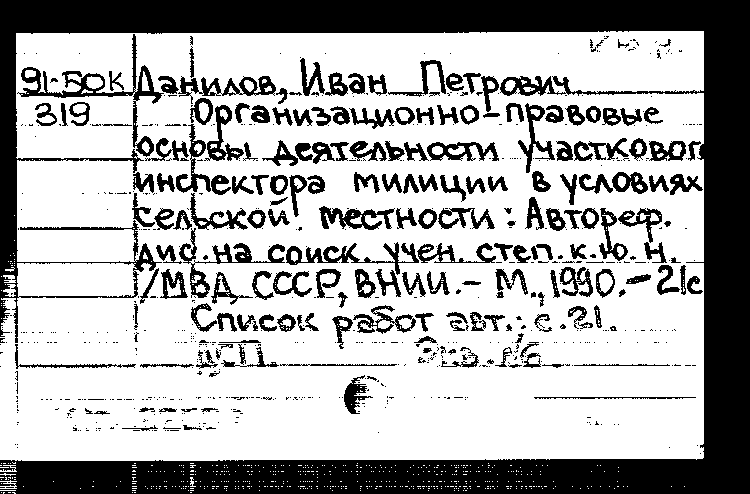 к ю н.
91-БОК Данилов, Иван Петрович
319 Организационно-правовые
основы деятельности участкового
инспектора милиции в условиях
сельской местности: Автореф.
дис. на соиск. учен. степ. к.ю.н.
/МВД СССР, ВНИИ.- М., 1990.- 21с
Список работ авт.: с.21.
ДСП. Экз. №6